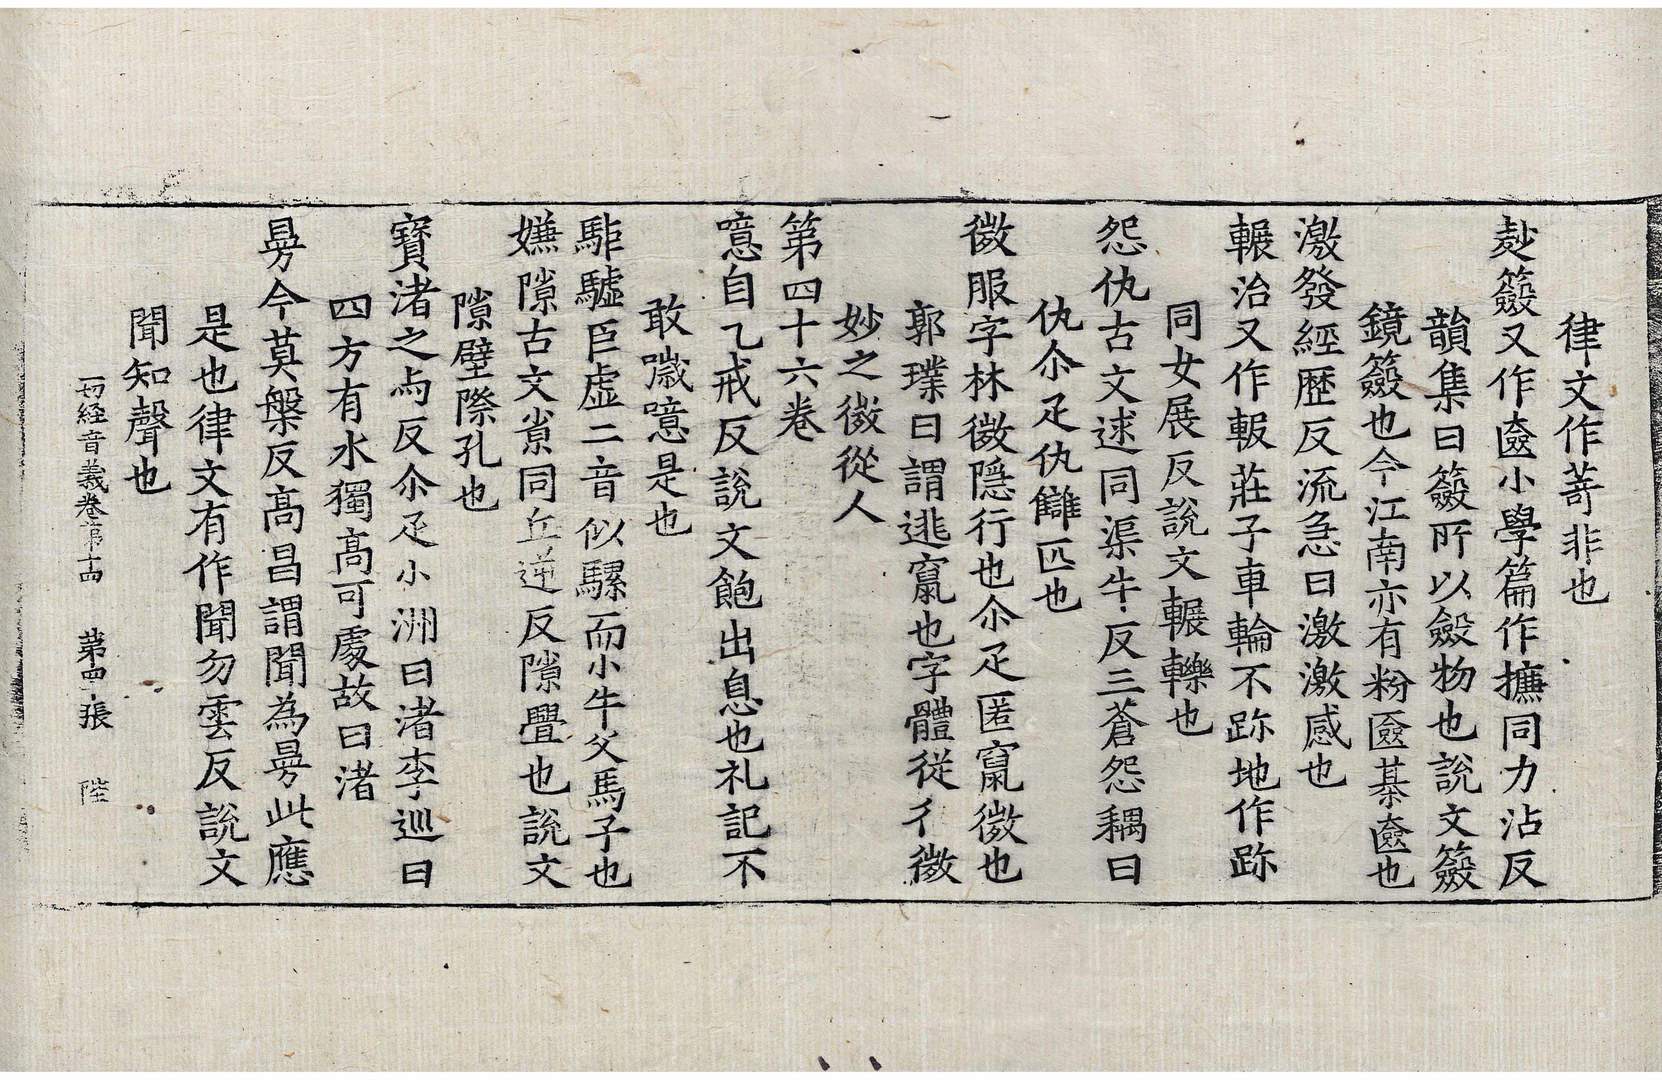 律文作莻非也
赻籢又作匳小學篇作攗同力沾反
韻集曰籢所以斂物也說文籢
鏡籢也今江南亦有粉匳棊匳也
激發經歷反流急曰激激感也
輾治又作報莊子車輪不跡地作跡
同女展反說文輾轢也
怨仇古文逑同渠牛反三蒼怨耦曰
仇尒疋仇讎匹也
微服字林微隱行也尒疋匿竄微也
郭璞曰謂逃竄也字體從彳微
妙之微從人
第四十六卷
噫自乙戒反說文飽出息也礼記不
敢噦噫是也
駏驉巨虛二音似騾而小牛父馬子也
嫌隙古文㡭同丘逆反隙舋也說文
隙壁際孔也
寶渚之与反尒疋小洲曰渚李巡曰
四方有水獨高可處故曰渚
昘今莫槃反高昌謂聞為昘此應
是也律文有作聞勿雲反說文
聞知聲也
一切經音義卷第十四 第四張 陛